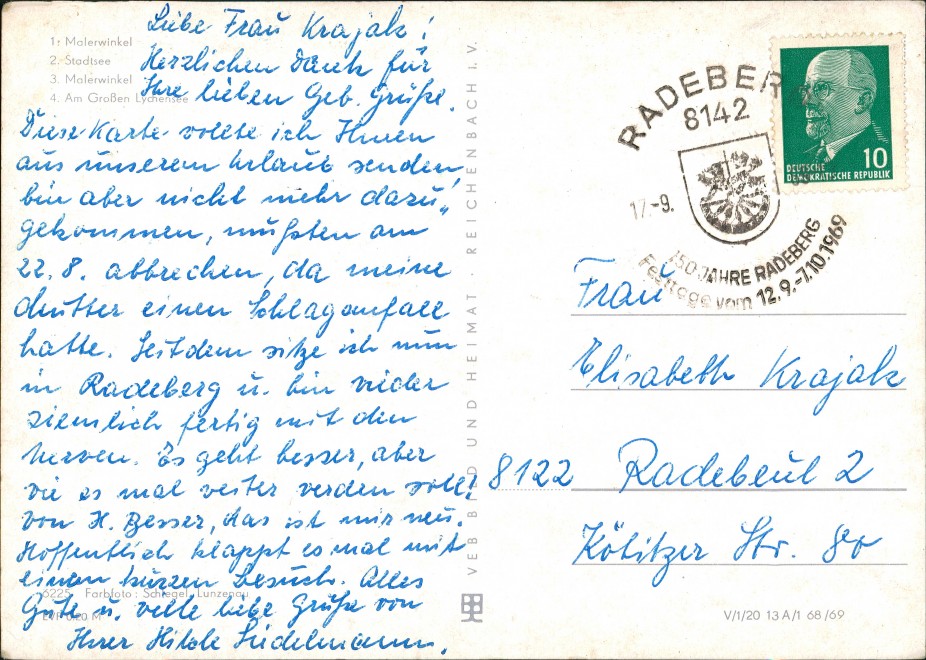 Liebe Frau Krajak!
Herzlichen Dank für
Ihre lieben Geb. Grüße.
Diese Karte wollte ich Ihnen
aus unserem Urlaub senden,
bin aber nicht mehr dazu
gekommen, mußten am
22.8. abbrechen, da meine
Mutter einen Schlaganfall
hatte. Seitdem sitze ich nun
in Radeberg u. bin wieder
ziemlich fertig mit den
Nerven. Es geht besser, aber
wie es mal weiter werden soll?
Von H. Besser, das ist mir neu.
Hoffentlich klappt es mal mit
einem kurzen Besuch. Alles
Gute u. viele liebe Grüße von
Ihrer Hilde Siedelmann.
1: Malerwinkel
2. Stadtsee
3. Malerwinkel
4. Am Großen Lychensee
6225 Farbfoto: Schlegel, Lunzenau
EVP 0,20 M
VEB BILD UND HEIMAT · REICHENBACH I. V.
RADEBERG
8142
17.-9.
750 JAHRE RADEBERG
Festtage vom 12.9.-7.10.1969
10
DEUTSCHE
DEMOKRATISCHE REPUBLIK
Frau
Elisabeth Krajak
8122 Radebeul 2
Kötitzer Str. 80
V/1/20 13 A/1 68/69